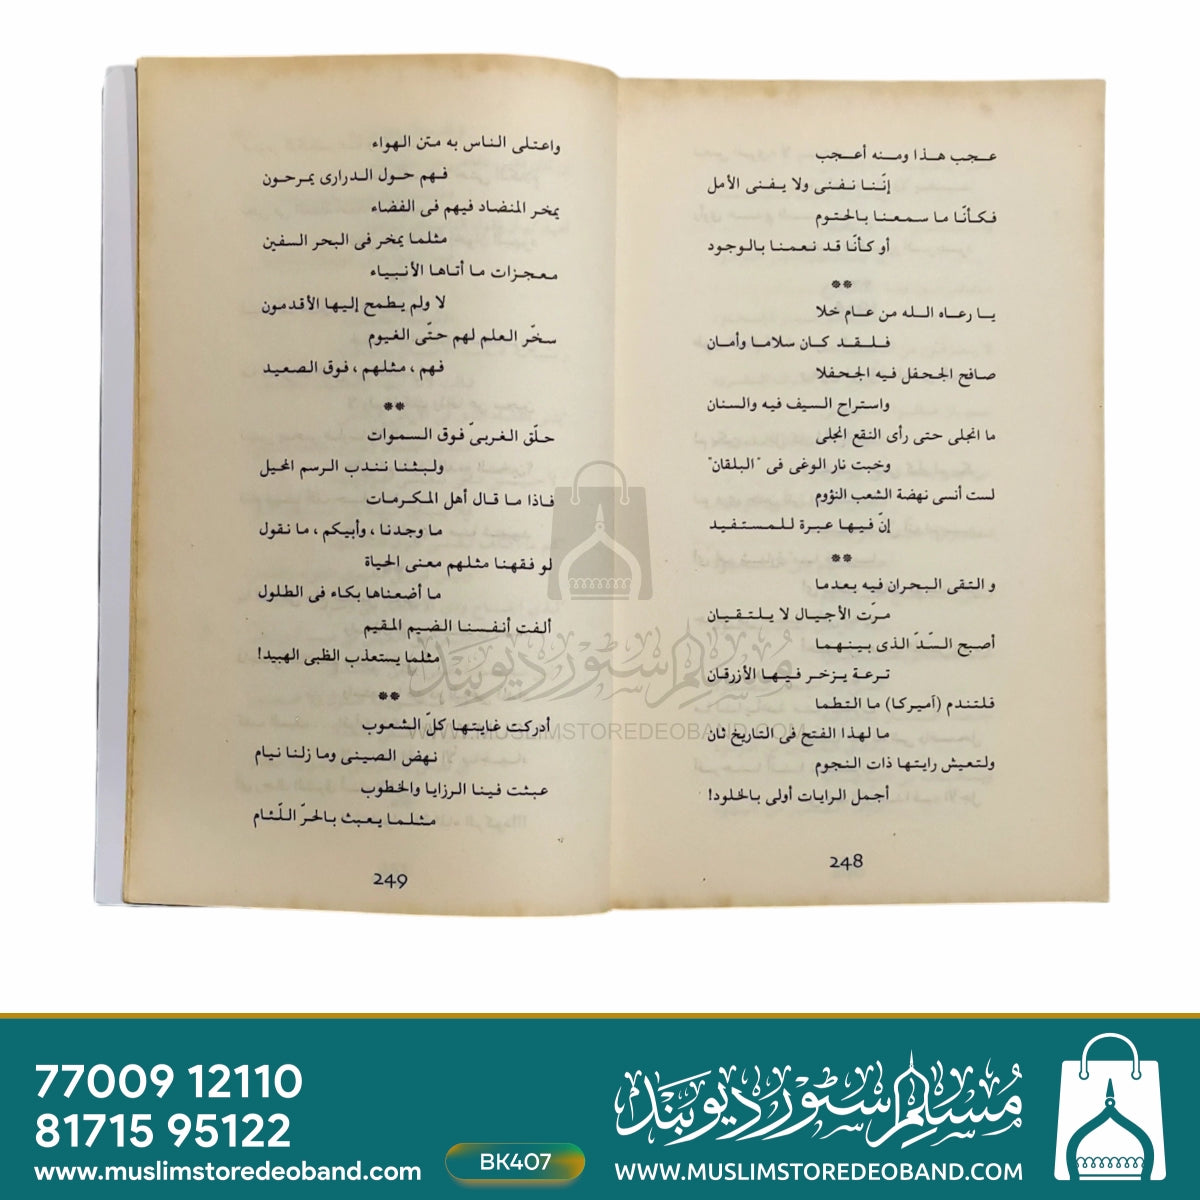 عجب هذا ومنه أعجب
إنّنا نفنى ولا يفنى الأمل
فكأنّا ما سمعنا بالحتوم
أو كأنّا قد نعمنا بالوجود
**
يا رعاه الله من عام خلا
فلقد كان سلاما وأمان
صافح الجحفل فيه الجحفلا
واستراح السيف فيه والسنان
ما انجلى حتى رأى النقع انجلى
وخبت نار الوغى فى "البلقان"
لست أنسى نهضة الشعب النؤوم
إنّ فيها عبرة للمستفيد
**
و التقى البحران فيه بعدما
مرّت الأجيال لا يلتقيان
أصبح السّدّ الذى بينهما
ترعة يزخر فيها الأزرقان
فلتندم (آميركا) ما التطما
ما لهذا الفتح فى التاريخ ثان
ولتعيش رايتها ذات النجوم
أجمل الرايات أولى بالخلود!
248
واعتلى الناس به متن الهواء
فهم حول الدرارى يمرحون
يمخر المنضاد فيهم فى الفضاء
مثلما يمخر فى البحر السفين
معجزات ما أتاها الأنبياء
لا ولم يطمح إليها الأقدمون
سخّر العلم لهم حتّى الغيوم
فهم ، مثلهم ، فوق الصعيد
**
حلّق الغربىّ فوق السموات
ولبثنا نندب الرسم المحيل
فاذا ما قال أهل المكرمات
ما وجدنا ، وأبيكم ، ما نقول
لو فقهنا مثلهم معنى الحياة
ما أضعناها بكاء فى الطلول
ألفت أنفسنا الضيم المقيم
مثلما يستعذب الظبى الهبيد!
**
أدركت غايتها كلّ الشعوب
نهض الصينى وما زلنا نيام
عبثت فينا الرزايا والخطوب
مثلما يعبث بالحرّ اللّئام
249
مسلم سٹور دیوبند
WWW.MUSLIMSTOREDEOBAND.COM
77009 12110
81715 95122
www.muslimstoredeoband.com
BK407
مسلم سٹور دیوبند
WWW.MUSLIMSTOREDEOBAND.COM